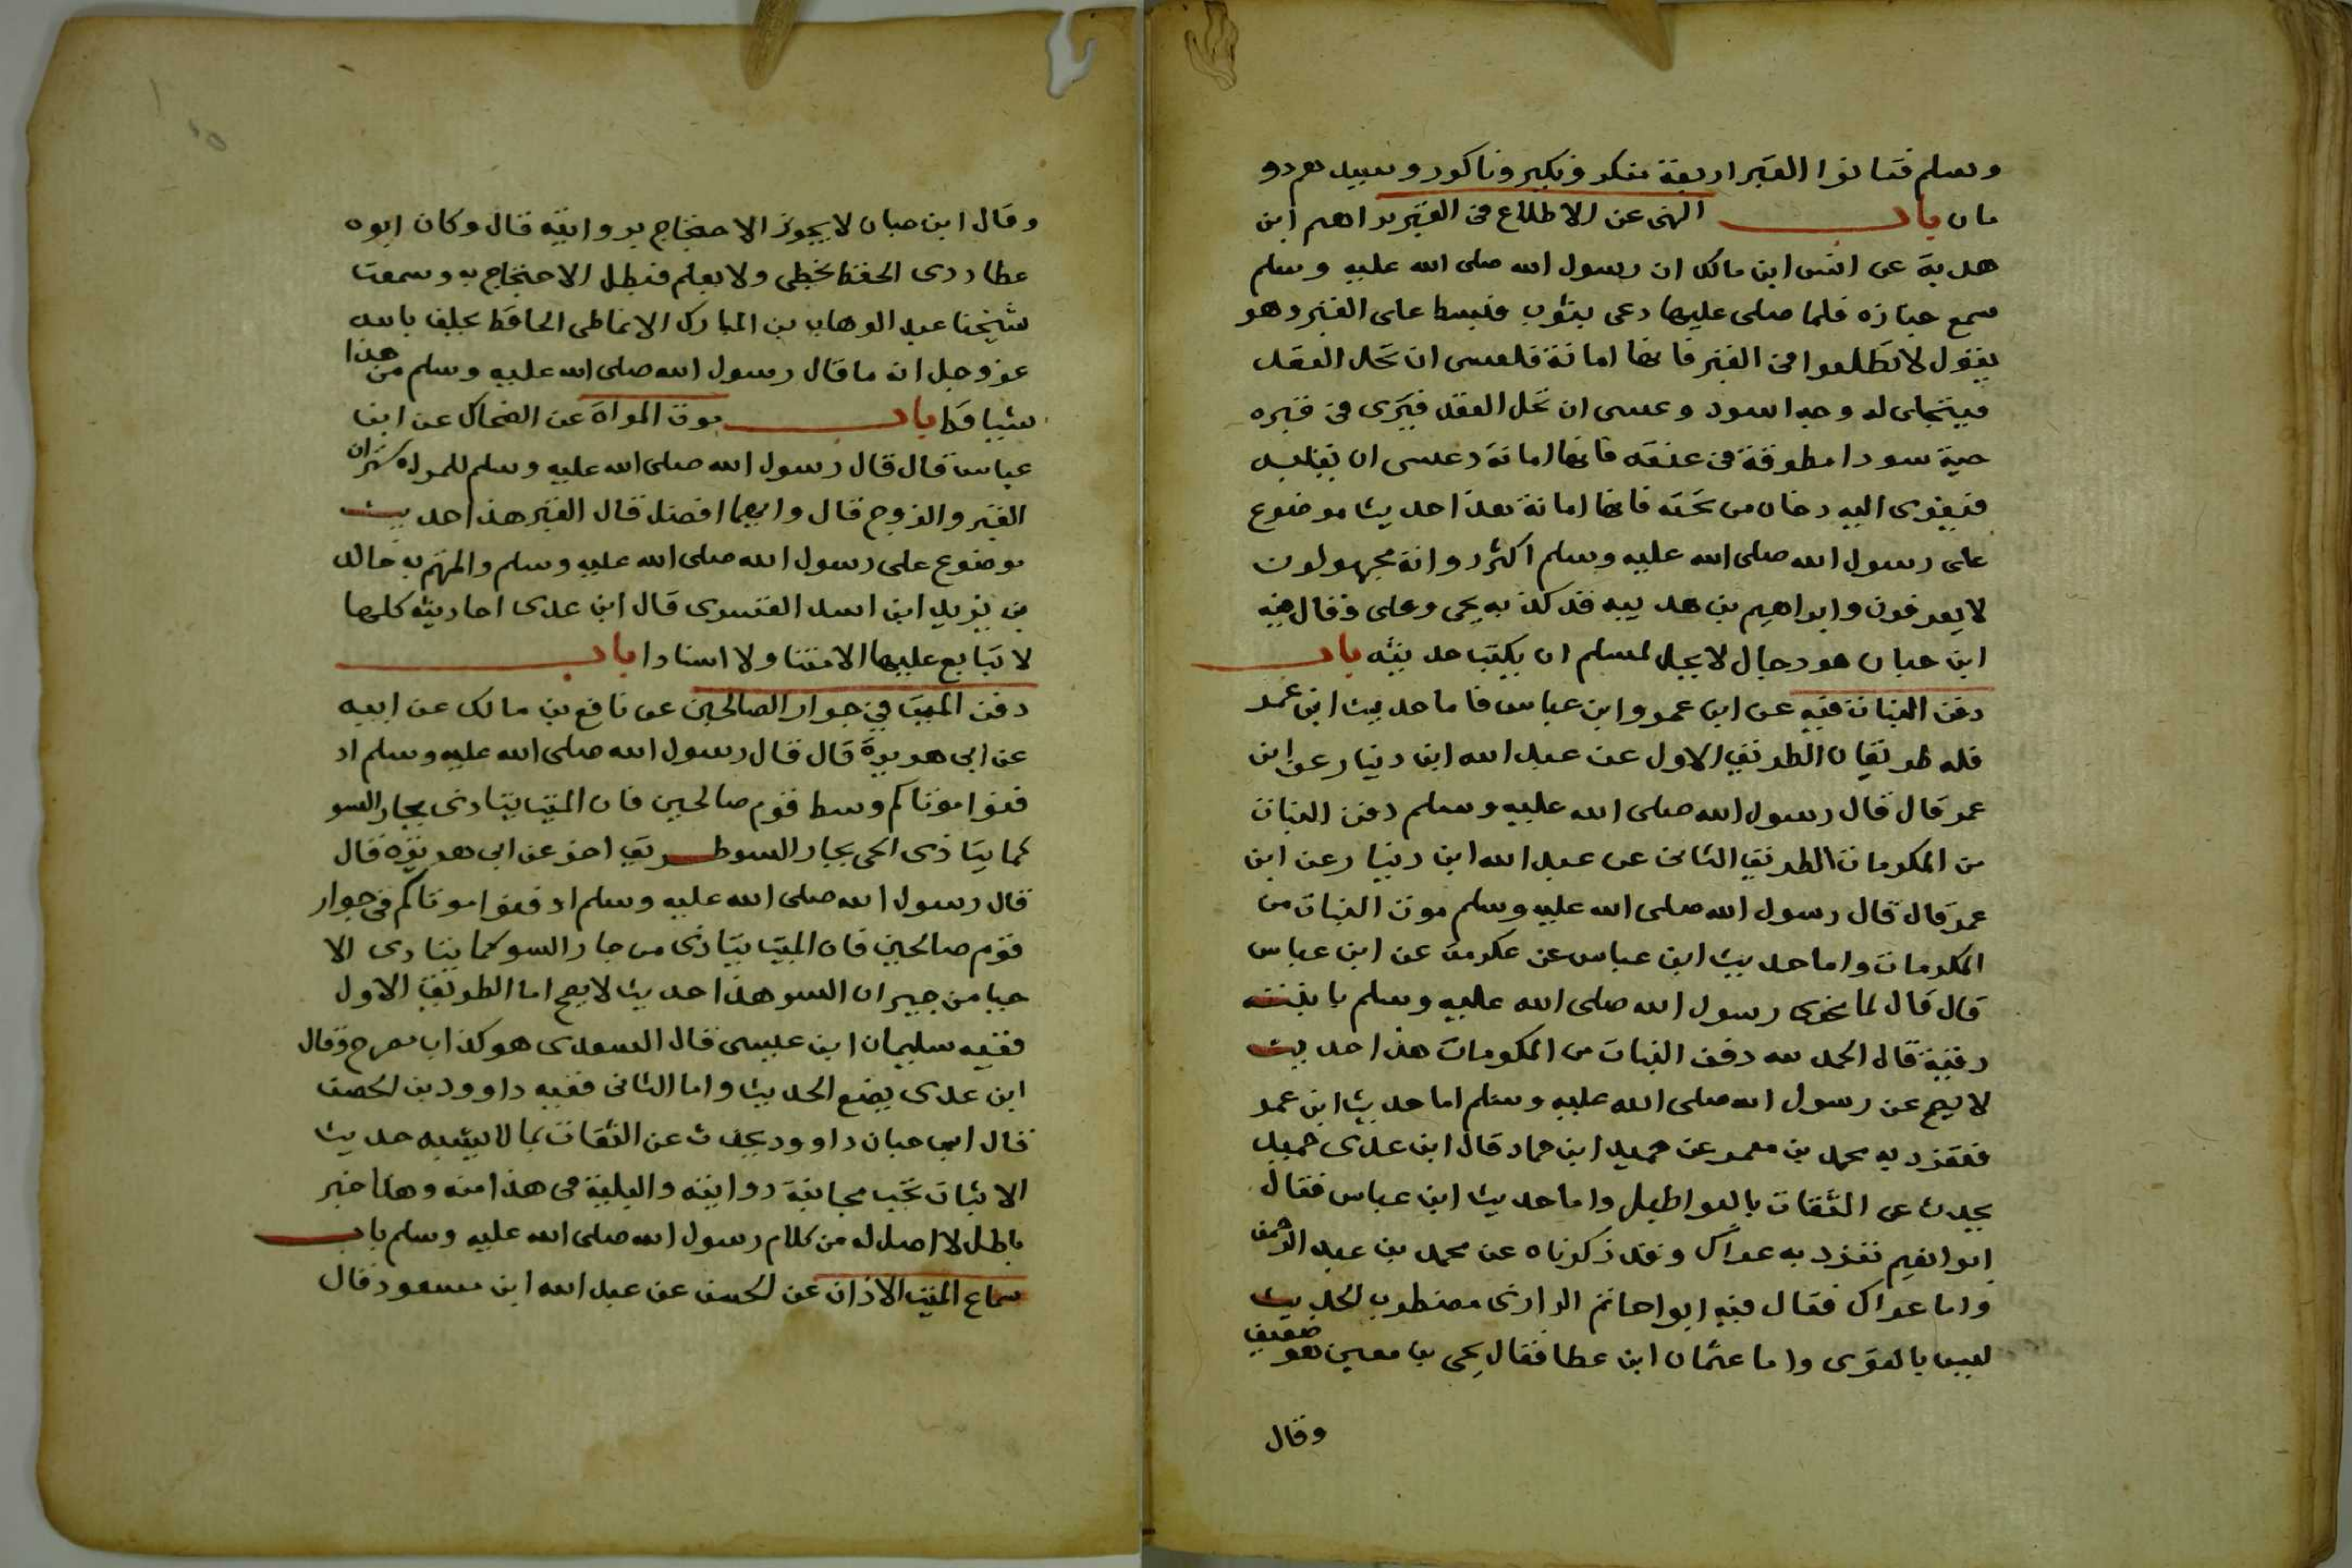 وسلم فتانوا القبر اربعة منكر ونكير وناكور وسيدهم دو
مان باب النهى عن الاطلاع فى القبر براهم ابن
هدية عن انس ابن مالك ان رسول الله صلى الله عليه وسلم
سمع جنازه فلما صلى عليها دعى بثوب فبسط على القبر وهو
يقول لا تطلعوا فى القبر فانها امانة فلعسى ان تحل العقد
فيتجلى له وجه اسود وعسى ان تحل العقد فيرى فى قبره
حية سودا مطوقة فى عنقه فانها امانة وعسى ان يقلبه
فيفوى اليه دخان من تحته فانها امانة هذا حديث موضوع
على رسول الله صلى الله عليه وسلم اكثر رواته مجهولون
لا يعرفون وابراهيم بن هديبه قد كذبه يحى وعلى وقال فيه
ابن حبان هو دجال لا يحل لمسلم ان يكتب حديثه باب
دفن البنات فيه عن ابن عمر وابن عباس فاما حديث ابن عمر
فله طريقان الطريق الاول عن عبد الله ابن دينار عن ابن
عمر قال قال رسول الله صلى الله عليه وسلم دفن البنات
من المكرمات الطريق الثانى عن عبد الله ابن دينار عن ابن
عمر قال قال رسول الله صلى الله عليه وسلم موت البنات من
المكرمات واما حديث ابن عباس عن عكرمة عن ابن عباس
قال قال لما عزى رسول الله صلى الله عليه وسلم بابنته
رقية قال الحمد لله دفن البنات من المكرمات هذا حديث
لا يصح عن رسول الله صلى الله عليه وسلم اما حديث ابن عمر
فتفرد به محمد بن معمر عن حميد ابن حماد قال ابن عدى حميد
يحدث عن الثقات بالبواطيل واما حديث ابن عباس فقال
ابو نعيم تفرد به عراك وقد ذكرناه عن محمد بن عبد الرحمن
واما عراك فقال فيه ابوا حاتم الرازى مضطرب الحديث
ليس بالقوى واما عثمان ابن عطا فقال يحى بن معين هو ضعيف
وقال
وقال ابن حبان لا يجوز الاحتجاج بروايته قال وكان ابوه
عطا ردى الحفظ يخطى ولا يعلم فبطل الاحتجاج به وسمعت
شيخنا عبد الوهاب بن المبارك الانماطى الحافظ يحلف بالله
عز وجل انه ما قال رسول الله صلى الله عليه وسلم من هذا
شيا قط باب موت المراة عن الضحاك عن ابن
عباس قال قال رسول الله صلى الله عليه وسلم للمراه ستران
القبر والزوج قال وايهما افضل قال القبر هذا حديث
موضوع على رسول الله صلى الله عليه وسلم والمتهم به خالد
بن يزيد ابن اسد القسرى قال ابن عدى احاديثه كلها
لا يتابع عليها لا متنا ولا اسنادا باب
دفن الميت في جوار الصالحين عن نافع بن مالك عن ابيه
عن ابى هريرة قال قال رسول الله صلى الله عليه وسلم اد
فنوا موتاكم وسط قوم صالحين فان الميت يتاذى بجار السو
كما يتاذى الحى بجار السو طريق اخر عن ابى هريرة قال
قال رسول الله صلى الله عليه وسلم ادفنوا موتاكم فى جوار
قوم صالحين فان الميت يتاذى من جار السو كما يتاذى الا
حيا من جيران السو هذا حديث لا يصح اما الطريق الاول
ففيه سليمان ابن عيسى قال السعدى هو كذاب مصرح وقال
ابن عدى يضع الحديث واما الثانى ففيه داوود بن الحصن
قال ابن حبان داوود يحدث عن الثقات بما لا يشبه حديث
الاثبات تجب مجانبة روايته والبلية فى هذا منه وهذا خبر
باطل لا اصل له من كلام رسول الله صلى الله عليه وسلم باب
سماع الميت الاذان عن الحسن عن عبد الله ابن مسعود قال